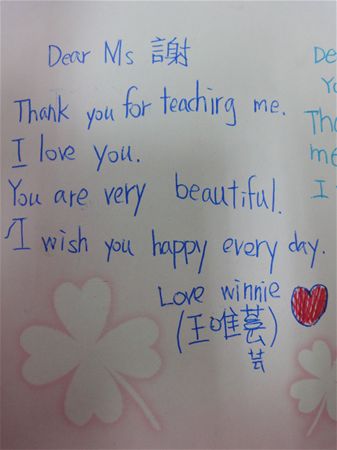 Dear Ms 謝
Thank you for teaching me.
I love you.
You are very beautiful.
I wish you happy every day.
Love winnie
(王唯芸)
芸
De
Yo
Tha
me
I